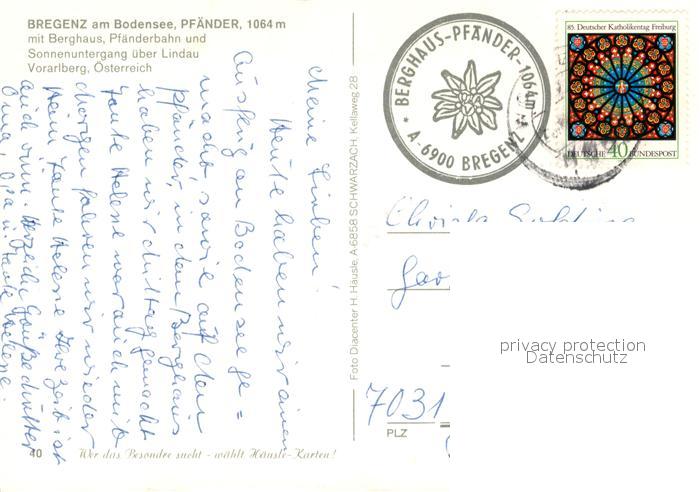 BREGENZ am Bodensee, PFÄNDER, 1064 m
mit Berghaus, Pfänderbahn und
Sonnenuntergang über Lindau
Vorarlberg, Österreich
Meine Lieben!
Heute haben wir einen
Ausflug an Bodensee ge=
macht sowie auf den
Pfänder, in dem Berghaus
haben wir Mittag gemacht
Tante Helene war auch mit
Morgen fahren wir wieder
heim Tante Helene
auch Herzliche Grüße
Oma, Opa u. Tante Helene.
40
Wer das Besondre sucht - wählt Häusle-Karten!
Foto Diacenter H. Häusle, A 6858 SCHWARZACH, Kellaweg 28
* BERGHAUS-PFÄNDER-1064m *
A-6900 BREGENZ
85. Deutscher Katholikentag Freiburg
DEUTSCHE 40 BUNDESPOST
7031
PLZ
privacy protection
Datenschutz